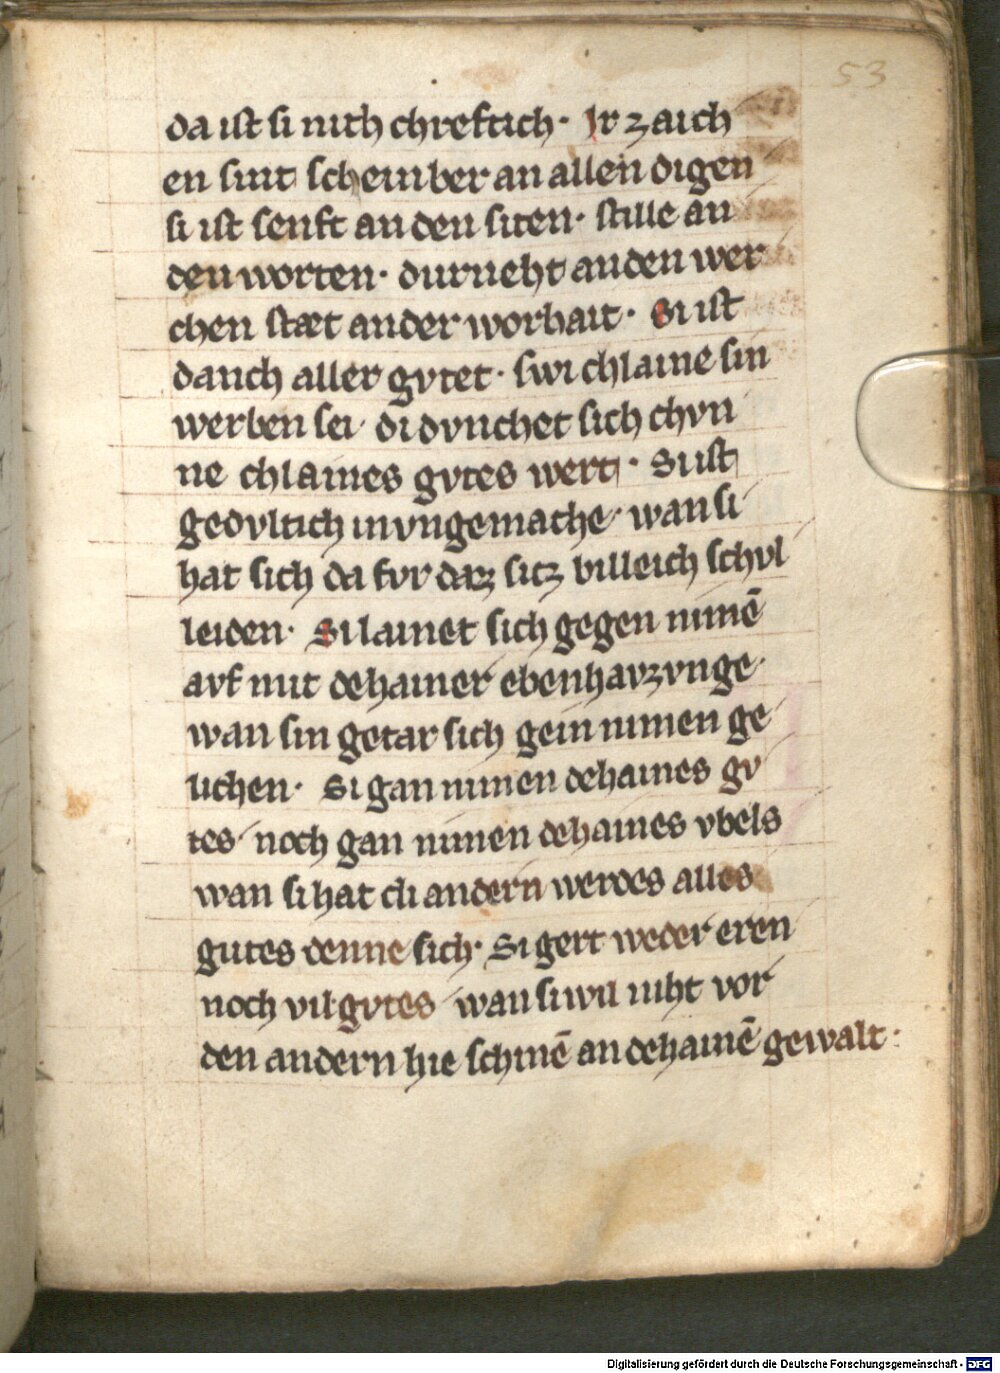 53
da ist si nith chreftich · Ir zaich
en sint scheinber an allen digen
si ist senft an den siten · stille an
den worten · durneht an den wer
chen stæt an der worhait · Si ist
danch aller gvtet · swi chlaine sin
werben sei · di dvnchet sich chvn
ne chlaines gvtes wert · Si ist
gedvltich in vngemache · wan si
hat sich da fvr daz sitz billeich schvl
leiden · Si lainet sich gegen nimē
avf mit dehainer ebenhavzvnge ·
wan sin getar sich gein nimen ge
lichen · Si gan nimen dehaines gv
tes noch gan nimen dehaines vbels
wan si hat di andern werdes alles
gutes denne sich · Si gert weder eren
noch vil gvtes wan si wil niht vor
den andern hie schinē an dehainē gewalt ·
Digitalisierung gefördert durch die Deutsche Forschungsgemeinschaft - DFG